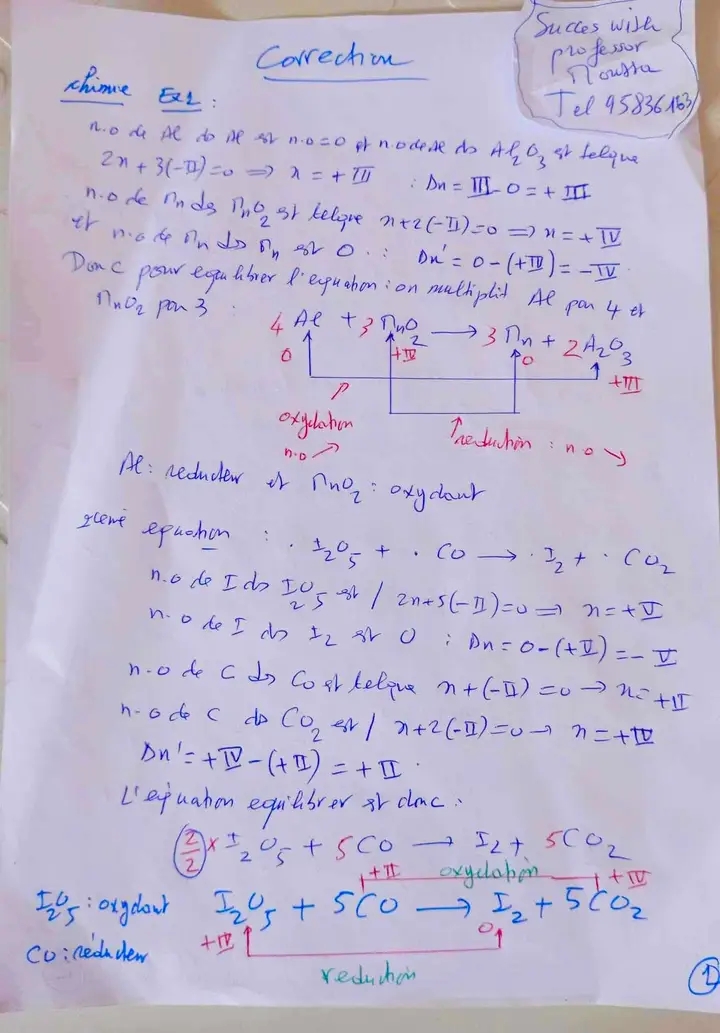 Correction
Succes with
professor
Moussa
Tel 95836163
chimie Ex1 :
n.o de Al ds Al est n.o=0 et n.o de Al ds Al₂O₃ est telque
2n + 3(-II)=0 ⟹ n = + III : Dn = III - 0 = + III
n.o de Mn ds MnO₂ est telque n+2(-II)=0 ⟹ n=+IV
et n.o de Mn ds Mn est 0 .: Dn' = 0-(+IV) = -IV
Donc pour equilibrer l'equation : on multiplit Al par 4 et
MnO₂ par 3 :
4 Al + 3 MnO₂ ⟶ 3 Mn + 2 A₂O₃
0 +IV 0 +III
oxydation
n.o ↗
reduction : n o ↘
Al : reducteur et MnO₂ : oxydant
2ieme equation : . I₂O₅ + . CO ⟶ . I₂ + . CO₂
n.o de I ds I₂O₅ est / 2n+5(-II)=0 ⟹ n=+V
n.o de I ds I₂ est 0 : Dn = 0-(+V) = - V
n.o de C ds CO est telque n+(-II) =0 → n= +II
n.o de C ds CO₂ est / n+2(-II)=0 → n = +IV
Dn' = +IV-(+II) = +II .
L'equation equilibrer est donc :
2/2 × I₂O₅ + 5CO ⟶ I₂ + 5CO₂
+II oxydation +IV
I₂O₅ : oxydant I₂O₅ + 5CO ⟶ I₂ + 5CO₂
CO : réducteur +IV 0
reduction
1